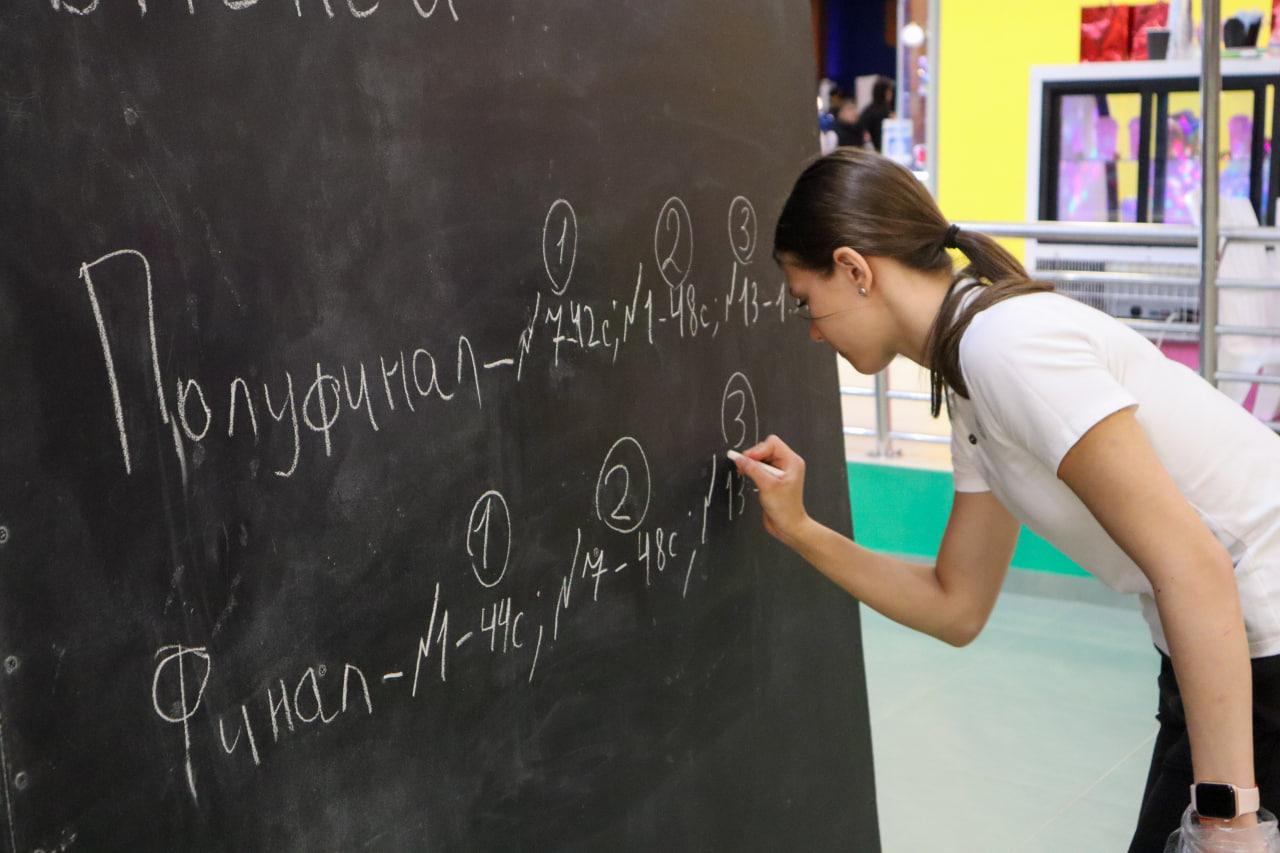 ① ② ③
Полуфинал - №7-42с; №1-48с; №13-1
③
① ②
Финал - №1-44с; №7-48с; №13-